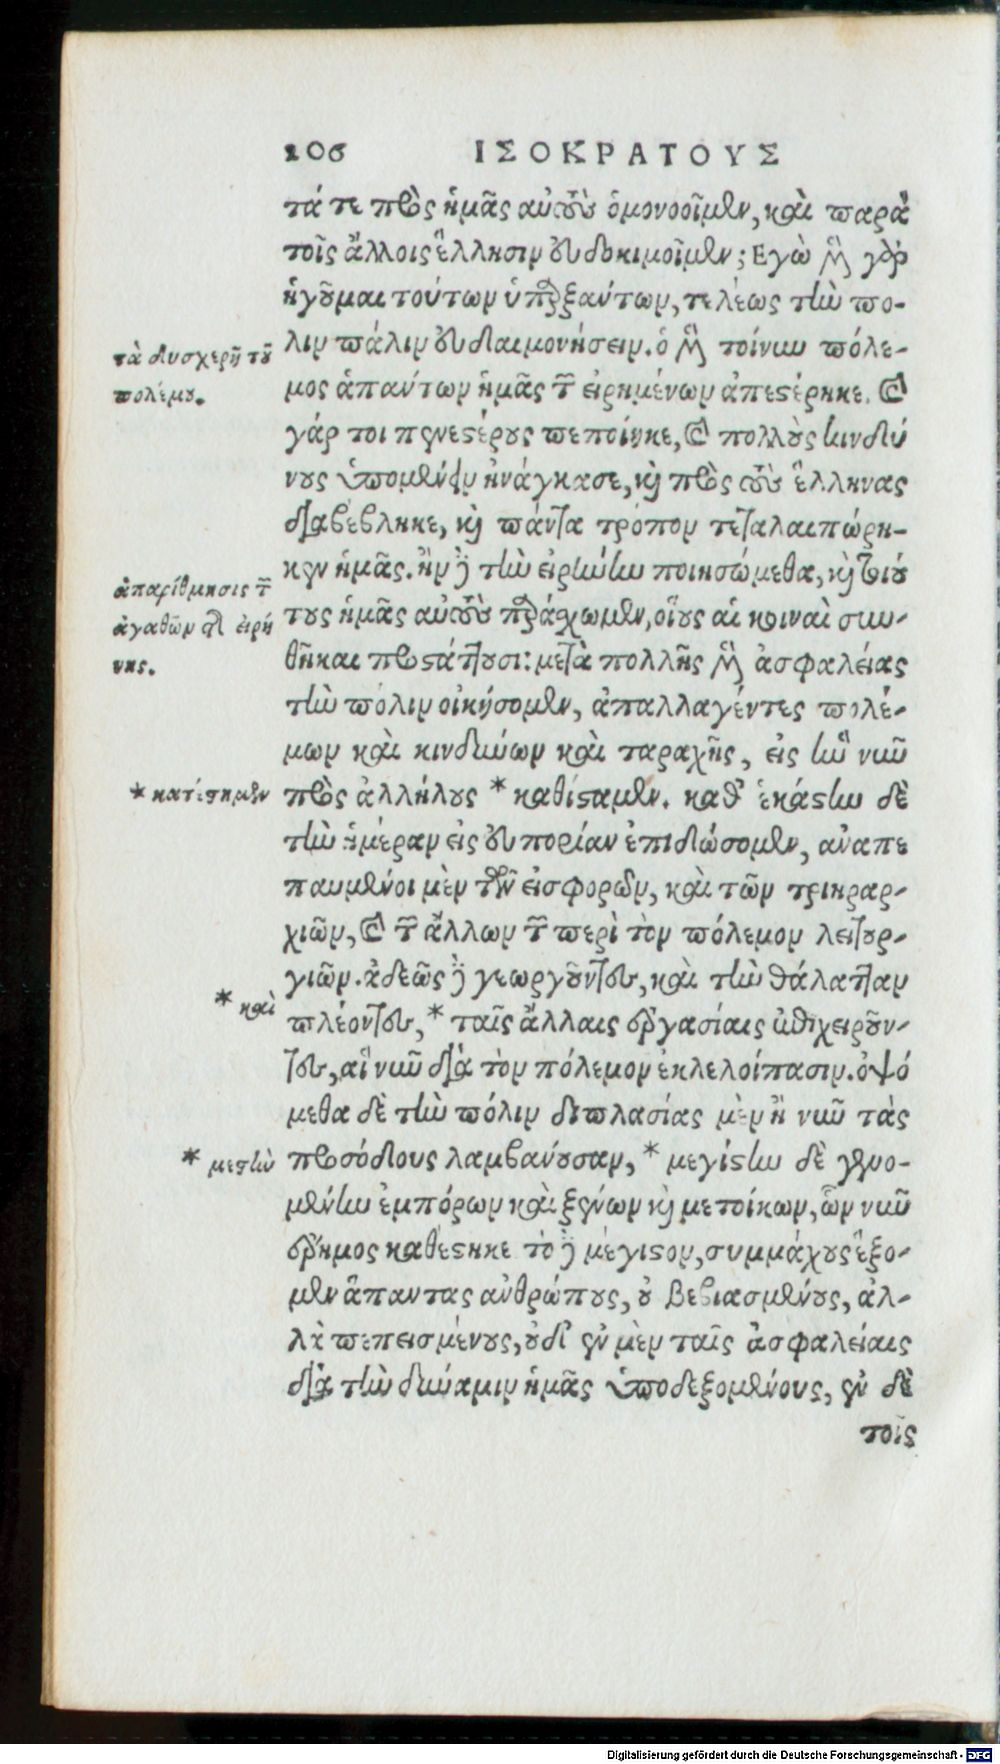 206 ΙΣΟΚΡΑΤΟΥΣ
τά τε πρὸς ἡμᾶς αὐτοὺς ὁμονοοῖμεν, καὶ παρὰ
τοῖς ἄλλοις ἕλλησιν εὐδοκιμοῖμεν; Εγὼ μὲν γὰρ
ἡγοῦμαι τούτων ὑπαρξάντων, τελέως τὴν πό-
λιν πάλιν εὐδαιμονήσειν. ὁ μὲν τοίνυν πόλε-
τὰ δυσχερῆ τοῦ
πολέμου.
μος ἁπάντων ἡμᾶς τῶν εἰρημένων ἀπεστέρηκε. καὶ
γάρ τοι πενεστέρους πεποίηκε, καὶ πολλοὺς κινδύ
νους ὑπομένειν ἠνάγκασε, καὶ πρὸς τοὺς ἕλληνας
διαβέβληκε, καὶ πάντα τρόπον τεταλαιπώρη-
κεν ἡμᾶς. ἢν δὲ τὴν εἰρήνην ποιησώμεθα, καὶ τοιού
ἀπαρίθμησις τῶν
ἀγαθῶν τῆς εἰρή
νης.
τους ἡμᾶς αὐτοὺς παράσχωμεν, οἵους αἱ κοιναὶ συν-
θῆκαι προστάττουσι: μετὰ πολλῆς μὲν ἀσφαλείας
τὴν πόλιν οἰκήσομεν, ἀπαλλαγέντες πολέ-
μων καὶ κινδύνων καὶ ταραχῆς, εἰς ἣν νῦν
* κατέστημεν
πρὸς ἀλλήλους * καθίσταμεν. καθ' ἑκάστην δὲ
τὴν ἡμέραν εἰς εὐπορίαν ἐπιδώσομεν, ἀναπε
παυμένοι μὲν τῶν εἰσφορῶν, καὶ τῶν τριηραρ-
χιῶν, καὶ τῶν ἄλλων τῶν περὶ τὸν πόλεμον λειτουρ-
γιῶν. ἀδεῶς δὲ γεωργοῦντες, καὶ τὴν θάλατταν
* καὶ
πλέοντες, * ταῖς ἄλλαις ἐργασίαις ἐπιχειροῦν-
τες, αἳ νῦν διὰ τὸν πόλεμον ἐκλελοίπασιν. ὀψό
μεθα δὲ τὴν πόλιν διπλασίας μὲν ἢ νῦν τὰς
* μεστὴν
προσόδους λαμβάνουσαν, * μεγίστην δὲ γενο-
μένην ἐμπόρων καὶ ξένων καὶ μετοίκων, ὧν νῦν
ἔρημος καθέστηκε τὸ δὲ μέγιστον, συμμάχους ἕξο-
μεν ἅπαντας ἀνθρώπους, οὐ βεβιασμένους, ἀλ-
λὰ πεπεισμένους, οὐδ' ἐν μὲν ταῖς ἀσφαλείαις
διὰ τὴν δύναμιν ἡμᾶς ὑποδεξομένους, ἐν δὲ
τοῖς
Digitalisierung gefördert durch die Deutsche Forschungsgemeinschaft - DFG